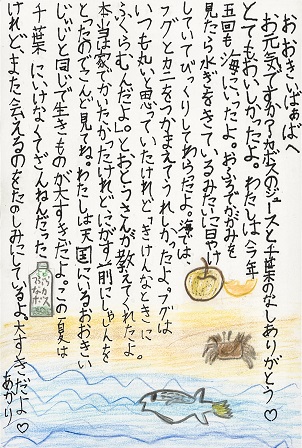 おおきいばぁばへ
お元気ですか？カボスのジュースと千葉のなしありがとう♡
とてもおいしかったよ。わたしは今年
五回も海にいったよ。おふろでかがみを
見たら水ぎをきているみたいに日やけ
していてびっくりしてわらったよ。海では、
フグとカニをつかまえてうれしかったよ。フグは
いつも丸いと思っていたけれど「きけんなときに
ふくらむんだよ。」とおとうさんが教えてくれたよ。
本当は家でかいたかったけれどにがす前にしゃしんを
とったのでこんど見てね。わたしは天国にいるおおきい
じぃじと同じで生きものが大すきだよ。この夏は
千葉にいけなくてざんねんだった
けれど、また会えるのをたのしみにしているよ。大すきだよ♡
あかり
カボス